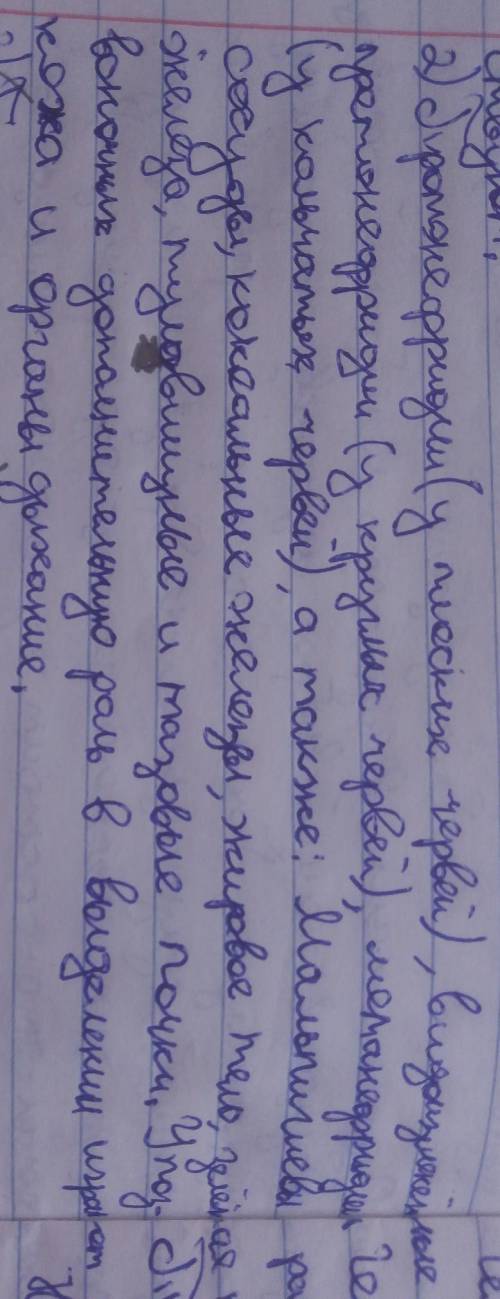 2) Протонефридии (у плоских червей), видоизменённые
претонефридии (у круглых червей), метанефридии
(у кольчатых червей), а также: Мальпигиевы
сосуды, коксальные железы, жировое тело, зелёная
железа, туловищные и тазовые почки. У поз-
воночных дополнительную роль в выделении играют
кожа и органы дыхания.